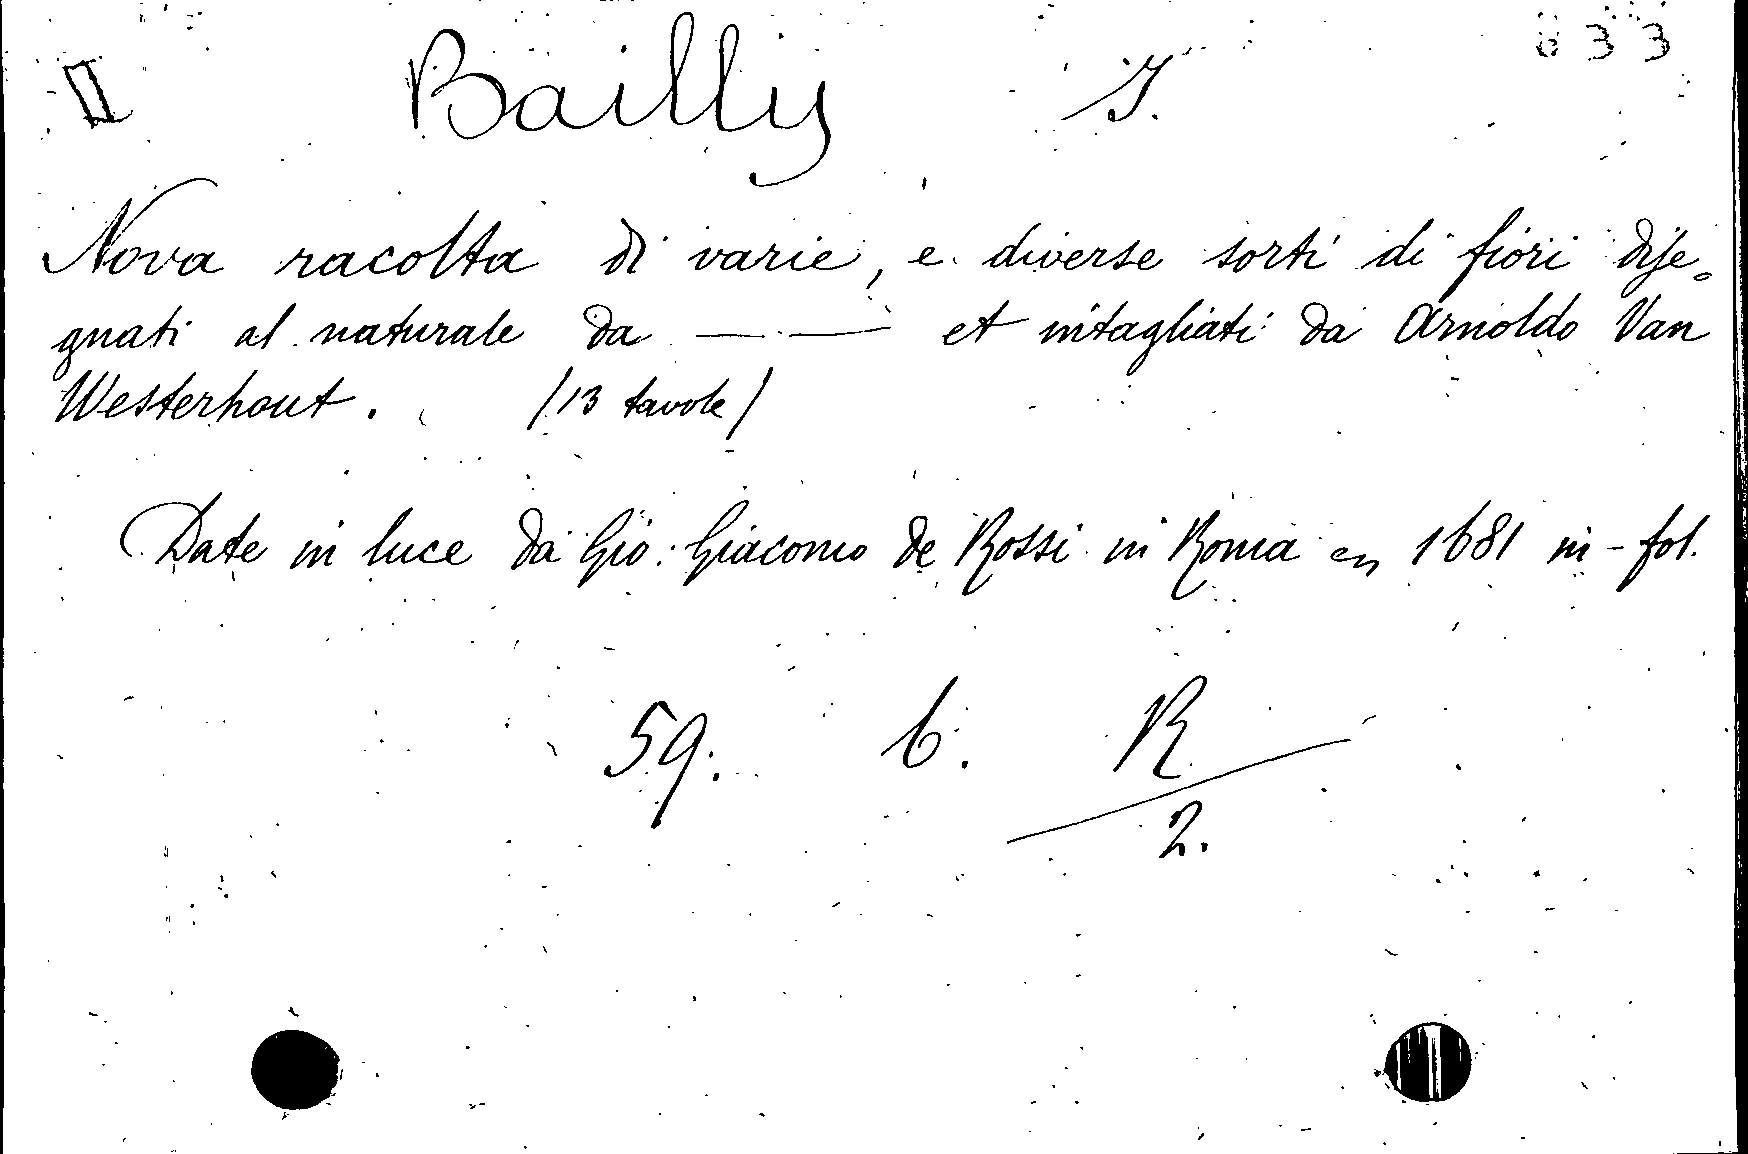 II Bailly J. 633
Nova racolta di varie, e diverse sorti di fiori dise=
gnati al naturale da — — et intagliati da Arnoldo Van
Westerhout. (13 tavole)
Date in luce da Gio: Giacomo de Rossi in Roma en 1681 in-fol.
59. 6. R
2.